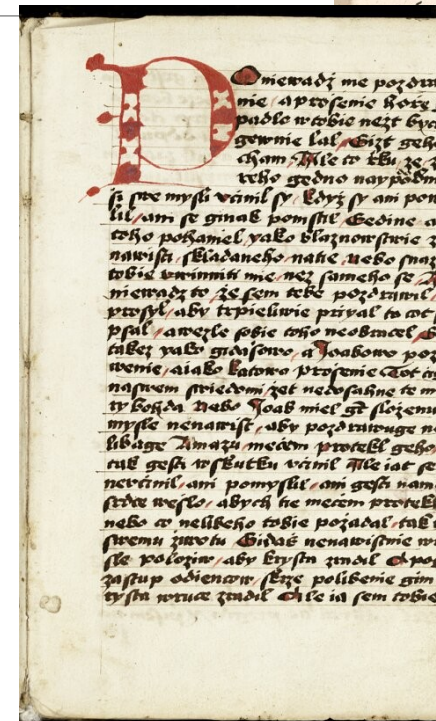 Poniewadz me pozdra
nie, a prosenie hore
padlo w tobie nezt byc
gewnie lal Gizt geh
cham, Ale to rku, ze, z
toho gedno naypodm
si swe mysli vcinil sy, kdyz sy ani pom
lil, ani se ginak pomstil Gedine a
toho pohaniel, yako blaznowstwie z
nawisti, skladaneho na tie Nebo snaz
tobie wwiniti mie, nez sameho se, A
niewadz to, ze sem tebe pozdrawil
prosyl, aby trpieliwie priyal to cot s
psal, a wezle sobie toho neobracel, G
takez yako gidasowo, a Joabowo poz
wenie, aiako katowo prosenie Tot ti
naswem swiedomi, zet nedosahne te m
ty bohda Nebo Joab miel gt slozenu
mysle nenawist, aby pozdrawuge ne
libage Amazu, mecem protekl geho
tak gesti w skutku vcinil Ale iat se
nevcinil, ani pomyslil, ani gesti nam
srdce weslo, abych tie mecem protekl
nebo co nelibeho tobie pozadal, tak
swemu zwotu Gidas nenawistnie w
sle poloziw, aby krysta zradil A pos
zastup odiencow, skrze polibenie gim
rysta w ruce zradil Ale ia sem tobie